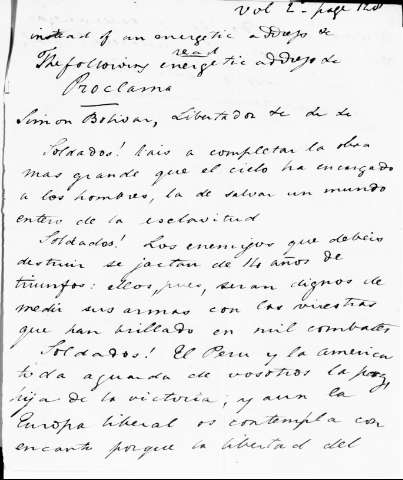 Vol 2 - page 128
instead of an energetic address &c
read
The following energetic address &c
Proclama
Simon Bolivar, Libertador &c &c &c
Soldados! Vais a completar la obra
mas grande que el cielo ha encargado
a los hombres, la de salvar un mundo
entero de la esclavitud
Soldados! Los enemigos que debeis
destruir se jactan de 14 años de
triunfos: ellos, pues, seran dignos de
medir sus armas con las vuestras
que han brillado en mil combates
Soldados! El Peru y la America
toda aguarda de vosotros la paz,
hija de la victoria; y aun la
Europa liberal os contempla con
encanto porque la libertad del